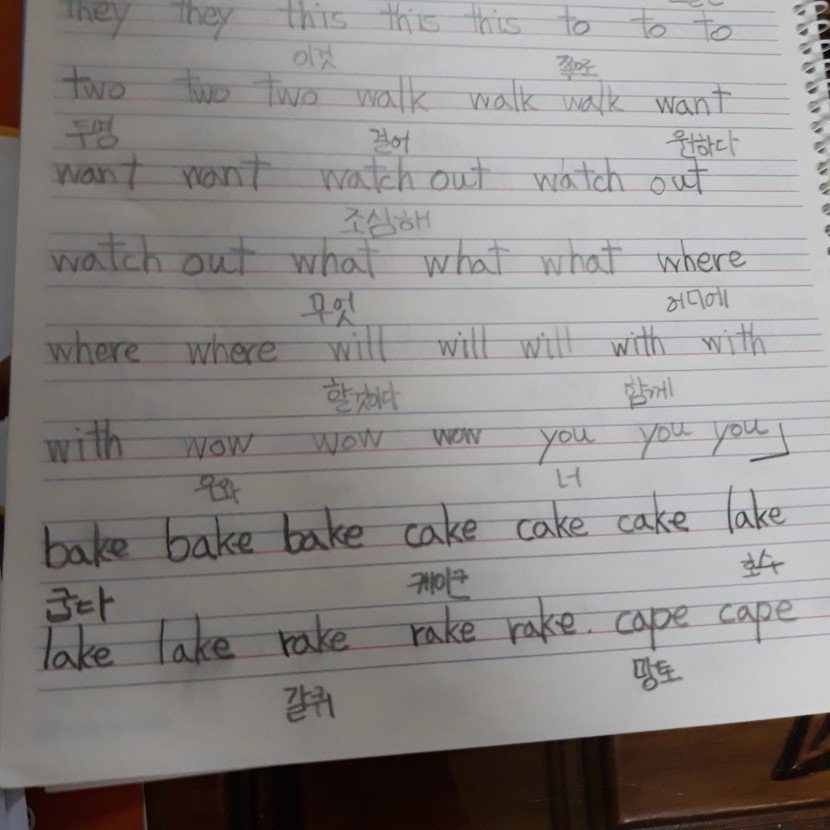 they they this this this to to to
이것 쪽으로
two two two walk walk walk want
두명 걸어 원하다
want want watch out watch out
조심해
watch out what what what where
무엇 어디에
where where will will will with with
할것이다 함께
with wow wow wow you you you
우와 너
bake bake bake cake cake cake lake
굽다 케이크 호수
lake lake rake rake rake. cape cape
갈퀴 망토